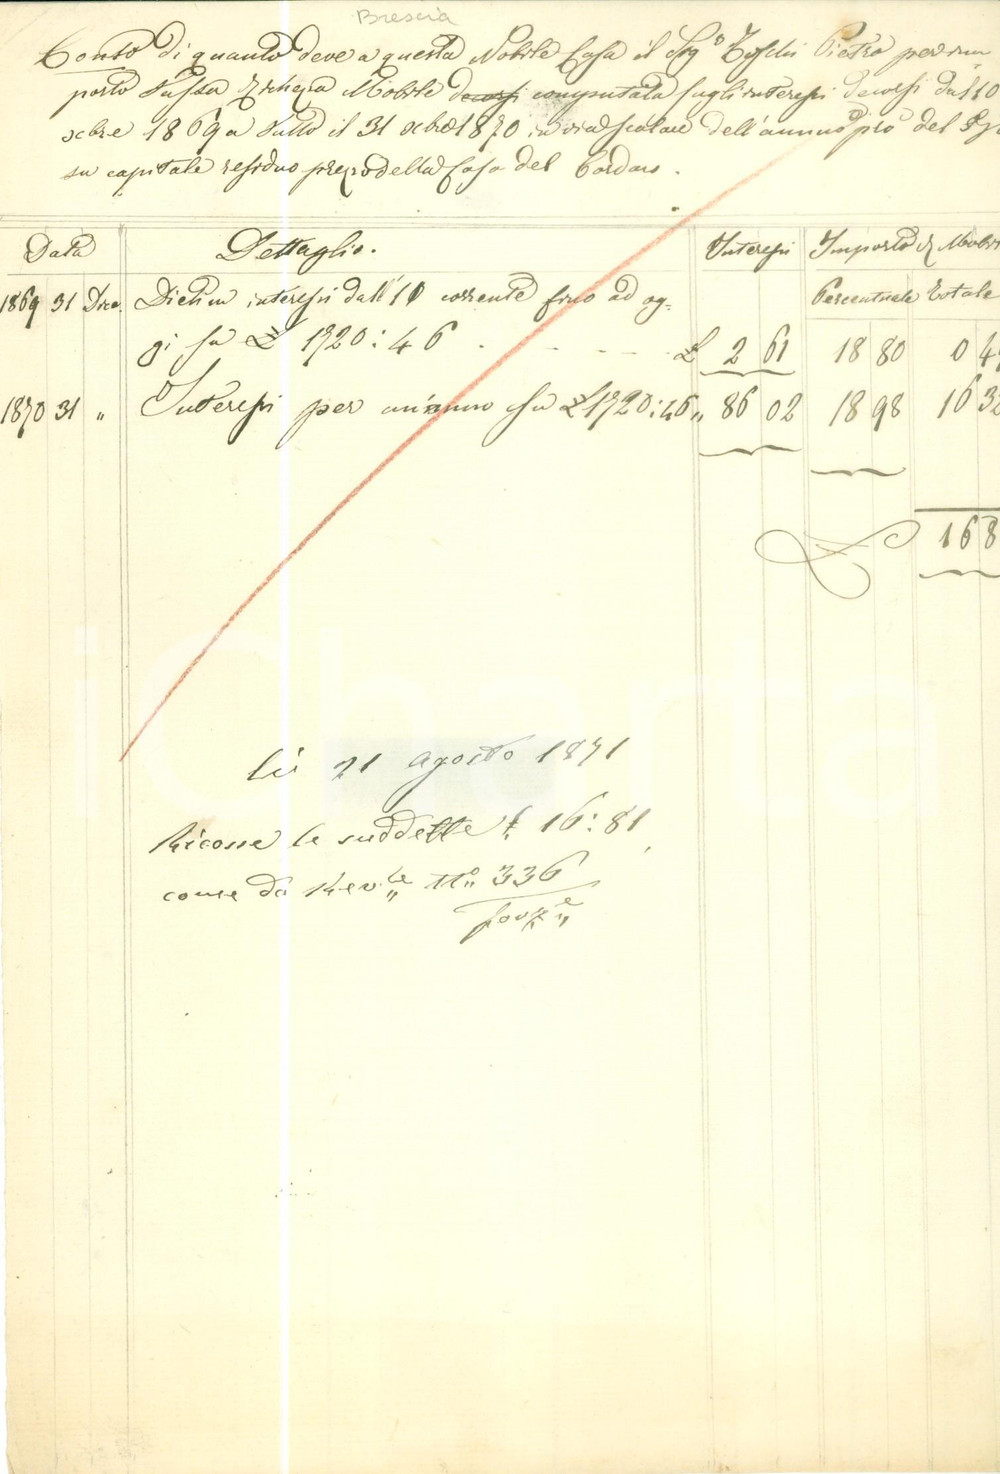 Brescia
Conto di quanto deve a questa Nobile Casa il Sig.o Toschi Pietro per im
porto Tassa Richeza Mobile decorsi computata sugli interessi decorsi dal 10
xcbre 1869 a tutto il 31 xcbre 1870 in via scalare dell'annuo pro del 5
su capitale residuo prezzo della Casa del Cordaro.
Data Dettaglio. Interessi Importo R. Mobi
Percentuale Totale
1869 31 Dice. Dietim interessi dall'10 corrente fino ad og=
gi su £ 1720:46 . - - - £ 2 61 18 80 0 4
1870 31 " Interessi per un anno su £ 1720:46 " 86 02 18 98 16 32
16 8
Lì 21 agosto 1871
Ricosse le suddette £ 16:81
come da Rev.le N.o 336
iChama